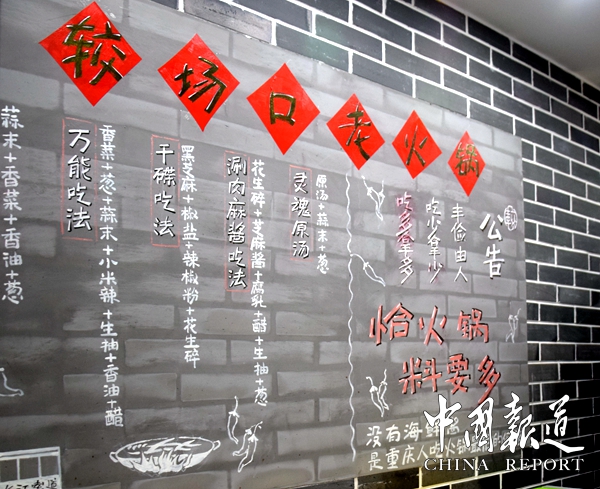 较场口老火锅
蒜末+香菜+香油+葱
万能吃法
香菜+葱+蒜末+小米辣+生抽+香油+醋
干碟吃法
黑芝麻+椒盐+辣椒粉+花生碎
涮肉麻酱吃法
花生碎+芝麻酱+腐乳+醋+生抽+葱
灵魂原汤
原汤+蒜末+葱
公告
丰俭由人
吃少拿少
吃多拿多
恰火锅
料要多
没有海鲜酱
是重庆人吃火锅
中國報道
CHINA REPORT